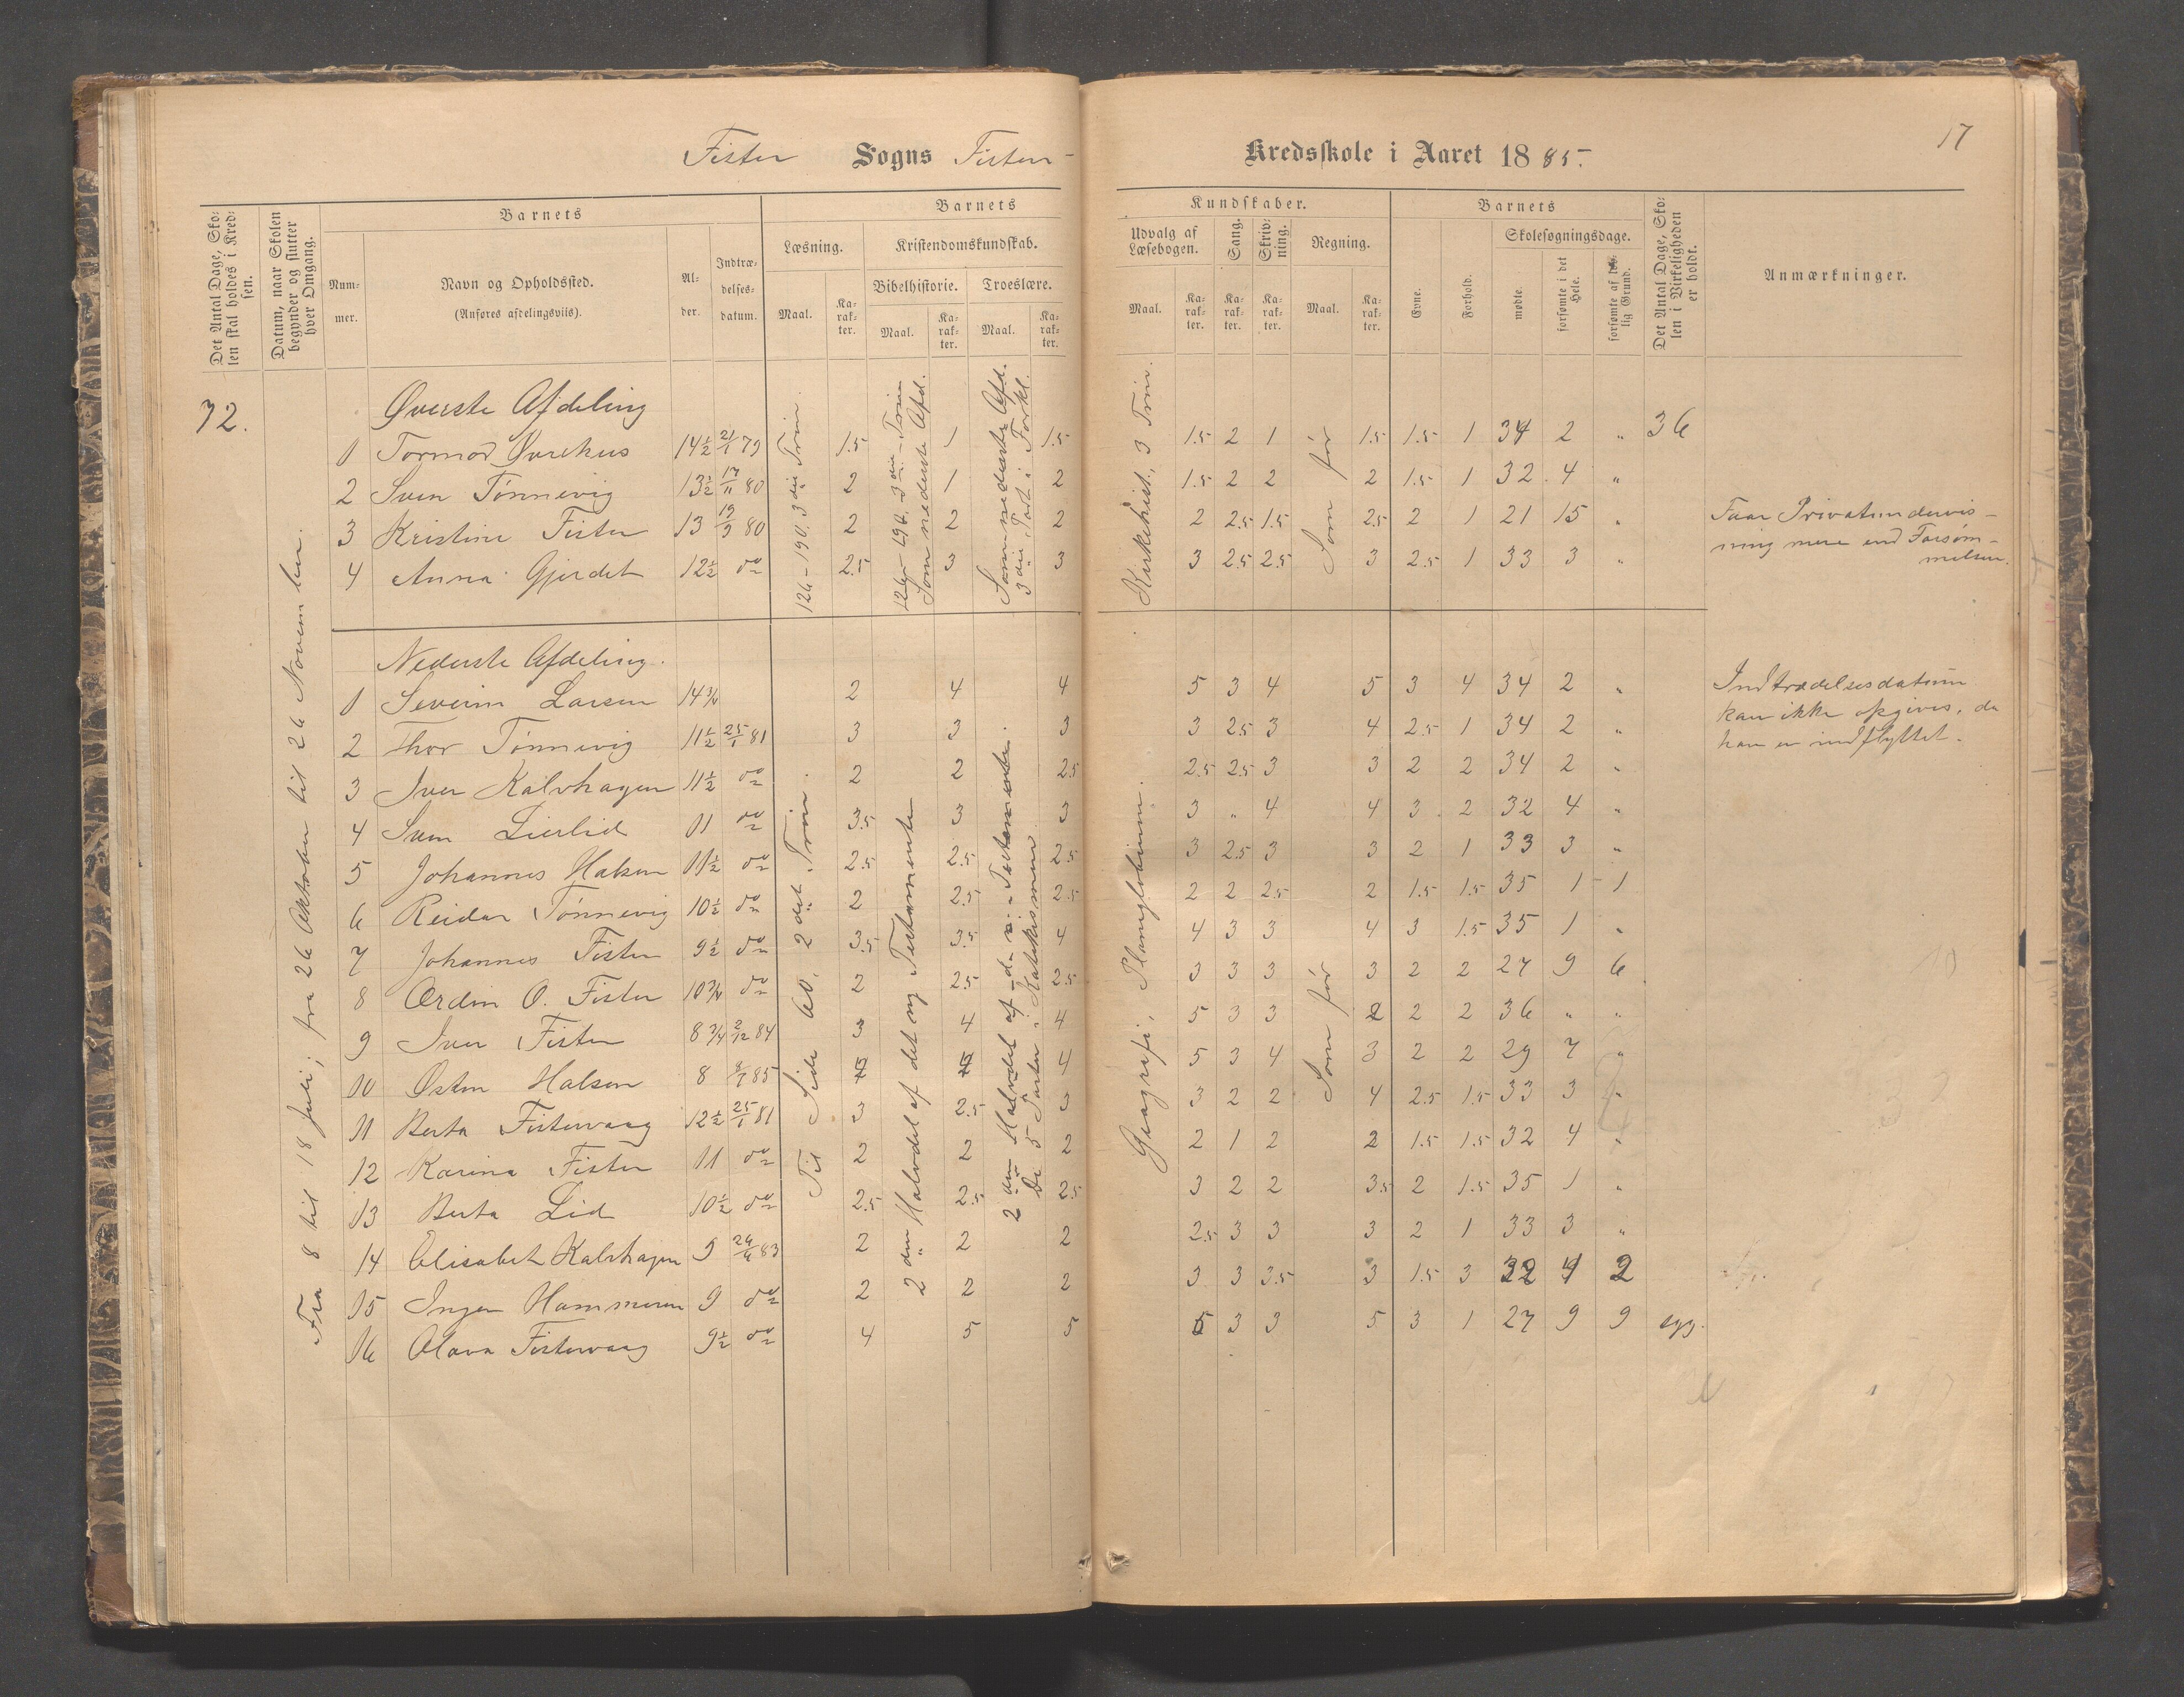 17
Fister Sogns Fister Kredsskole i Aaret 1885.
Det Antal Dage, Skolen skal holdes i Kredsen.
Datum, naar Skolen begynder og slutter hver Omgang.
Barnets
Nummer.
Navn og Opholdssted.
(Anføres afdelingsvis).
Alder.
Indtrædelsesdatum.
Barnets Kundskaber.
Læsning.
Maal. Karakter.
Kristendomskundskab.
Bibelhistorie. Troeslære.
Maal. Karakter. Maal. Karakter.
Udvalg af Læsebogen.
Maal. Karakter.
Sang. Karakter.
Skrivning. Karakter.
Regning.
Maal. Karakter.
Barnets
Evne. Forhold.
Skolesøgningsdage.
mødte. forsømte i det Hele. forsømte af lovlig Grund.
Det Antal Dage, Skolen i Virkeligheden er holdt.
Anmærkninger.
72.
Fra 8 til 18 Juli; fra 26 Oktober til 26 November.
Øverste Afdeling
36
1 Tormod Øvrehus 14½ 21/1 79 1.5 1 1.5 1.5 2 1 1.5 1.5 1 34 2 "
2 Sven Tønnevig 13½ 17/11 80 2 1 2 1.5 2 2 2 1.5 1 32 4 "
3 Kristine Fister 13 13/9 80 2 2 2 2 2.5 1.5 2.5 2 1 21 15 " Faar Privatundervis-
ning mere end Forsøm-
melsen.
4 Anna Gjerdet 12½ do 2.5 3 3 3 2.5 2.5 3 2.5 1 33 3 "
126-190. 3die Trin.
126-190. 3die Trin
Som nederste Afd.
Som nederste Afd.
3die Part i Forkl.
Kirkehist., 3 Trin.
Som før
Nederste Afdeling.
1 Severin Larsen 14¾ 2 4 4 5 3 4 5 3 4 34 2 " Indtrædelsesdatum
kan ikke opgives, da
han er indflyttet.
2 Thor Tønnevig 11½ 25/1 81 3 3 3 3 2.5 3 4 2.5 1 34 2 "
3 Iver Kalvhagen 11½ do 2 2 2.5 2.5 2.5 3 3 2 2 34 2 "
4 Sven Lierlid 11 do 3.5 3 3 3 " 4 4 3 2 32 4 "
5 Johannes Halsen 11½ do 2.5 2.5 2.5 3 2.5 3 3 2 1 33 3 "
6 Reidar Tønnevig 10½ do 2 2.5 2.5 2 2 2.5 2 1.5 1.5 35 1 - 1
7 Johannes Fister 9½ do 3.5 3.5 4 4 3 3 4 3 1.5 35 1 "
8 Ordin O. Fister 10¾ do 2 2.5 2.5 3 3 3 3 2 2 27 9 6
9 Iver Fister 8¾ 2/12 84 3 4 4 5 3 3 2 2 2 36 " "
10 Østen Halsen 8 8/7 85 4 4 4 5 3 4 3 2 2 29 7 "
11 Berta Fistervaag 12½ 25/1 81 3 2.5 3 3 2 2 4 2.5 1.5 33 3 "
12 Karina Fister 11 do 2 2 2 2 1 2 2 1.5 1.5 32 4 "
13 Berta Lid 10½ do 2.5 2.5 2.5 3 2 2 3.5 2 1.5 35 1 "
14 Elisabet Kalvhagen 9 24/6 83 2 2 2 2.5 3 3 3 2 1 33 3 "
15 Inger Hammeren 9 do 2 2 2 3 3 3.5 3 1.5 3 32 4 2
16 Olava Fistervaag 9½ do 4 5 5 5 3 3 5 3 1 27 9 9 syg.
Til Side 60, 2det Trin.
2den Halvdel af det ny Testamente
2den Halvdel af d. n. Testamente.
De 5 Parter i Katekismen
Geografi, Planglobium.
Som før